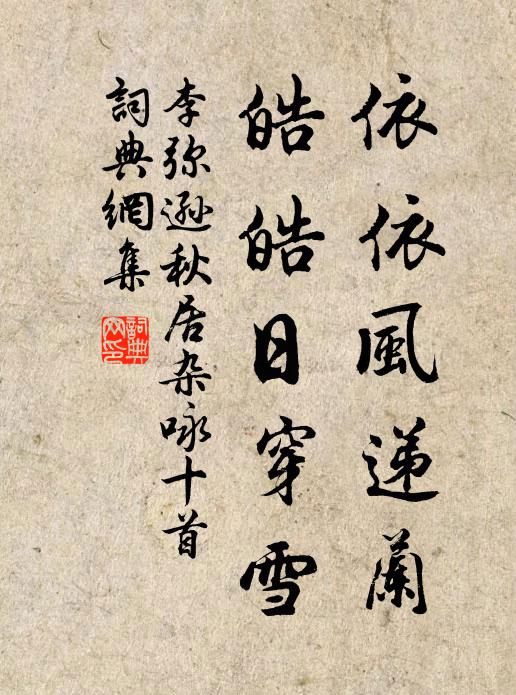 依依風递蘭
皓皓日穿雪
李弥逊秋居杂咏十首
詞典網集
詞典網印